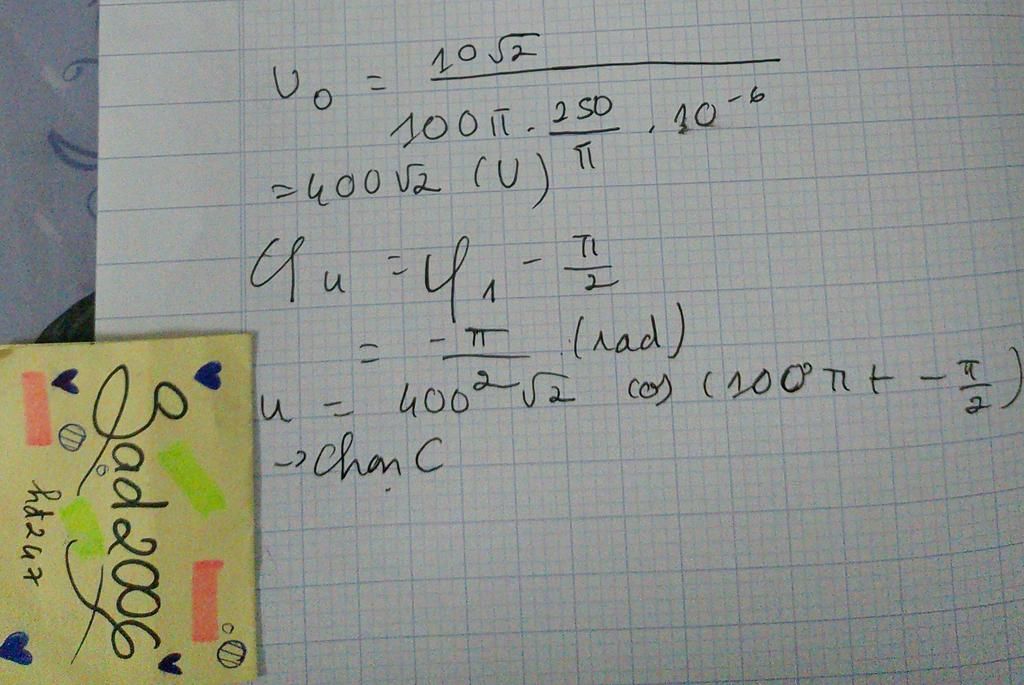 U₀ = 10√2 / 100π . 250/π . 10⁻⁶
= 400√2 (V)
φu = φ1 - π/2
= -π/2 (rad)
u = 400√2 cos (100πt - π/2)
→ Chọn C
Gad2006
hd247